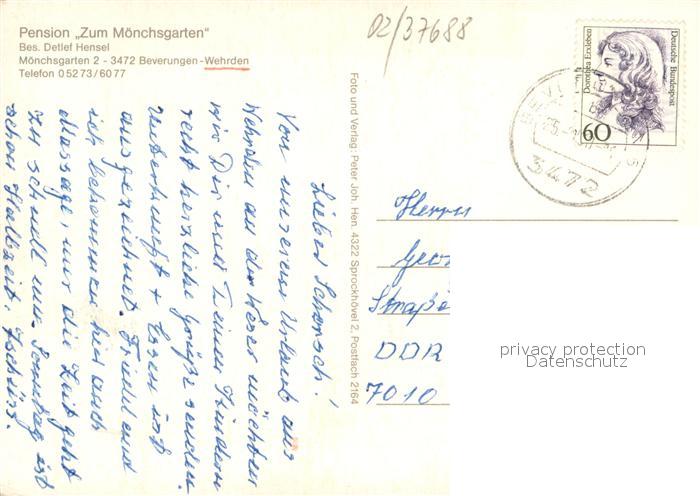 Pension „Zum Mönchsgarten"
Bes. Detlef Hensel
Mönchsgarten 2 - 3472 Beverungen-Wehrden
Telefon 0 52 73 / 60 77
02/37688
Deutsche Bundespost
Dorothea Erxleben
60
3472
Foto und Verlag: Peter Joh. Hen. 4322 Sprockhövel 2, Postfach 2164
Lieber Schorsch!
Von unserem Urlaub aus
Wehrden an der Weser möchten
wir Dir und Deinen Kindern
recht herzliche Grüße senden.
Unterkunft + Essen ist
ausgezeichnet. Friedel und
ich bekommen hier auch
Massage, nur die Zeit geht
zu schnell um. Sonntag ist
schon Halbzeit. Tschüss.
Herrn
Geor
Straße
DDR
7010
privacy protection
Datenschutz